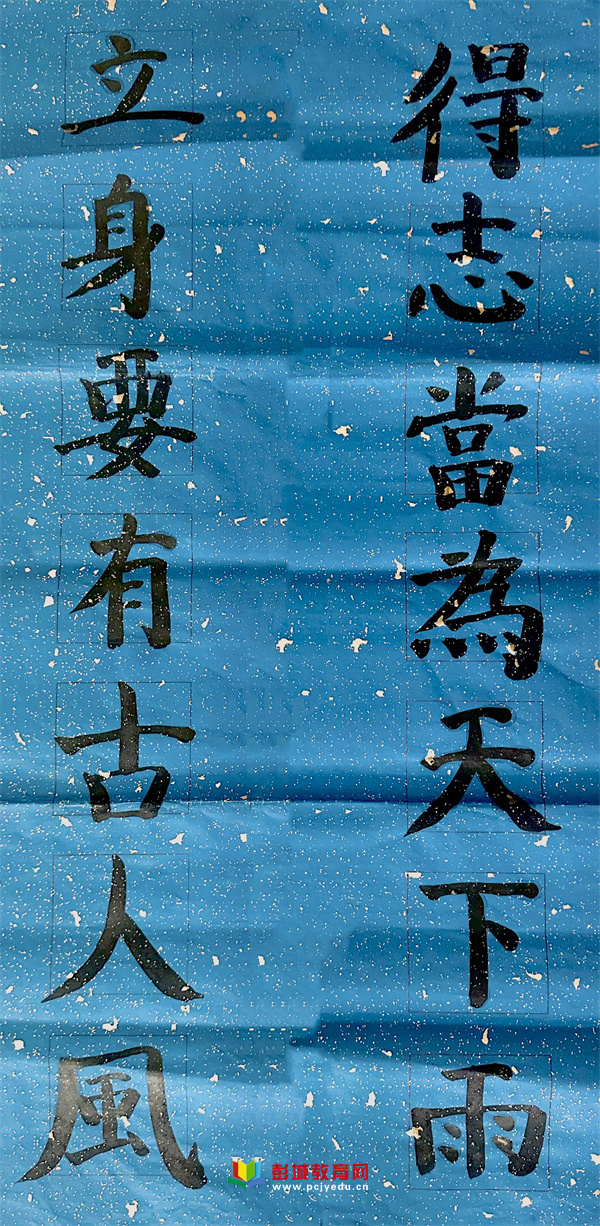 得志當為天下雨
立身要有古人風
彭城教育网
www.pcjyedu.cn